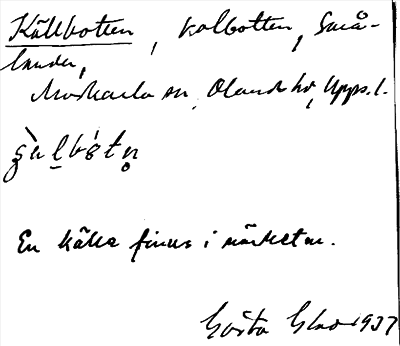 Källbotten, kolbotten, Små-
landa,
Morkarla sn, Olands hd, Uppl.

En källa finns i närheten.
Gösta Glad 1937